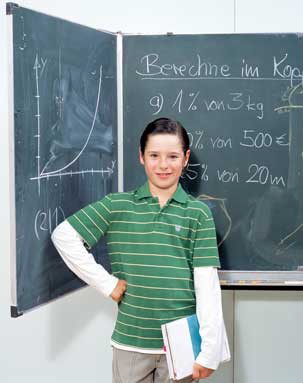 y
x
(2,1)
Berechne im Kop
a) 1% von 3 kg
0% von 500 €
5% von 20 m